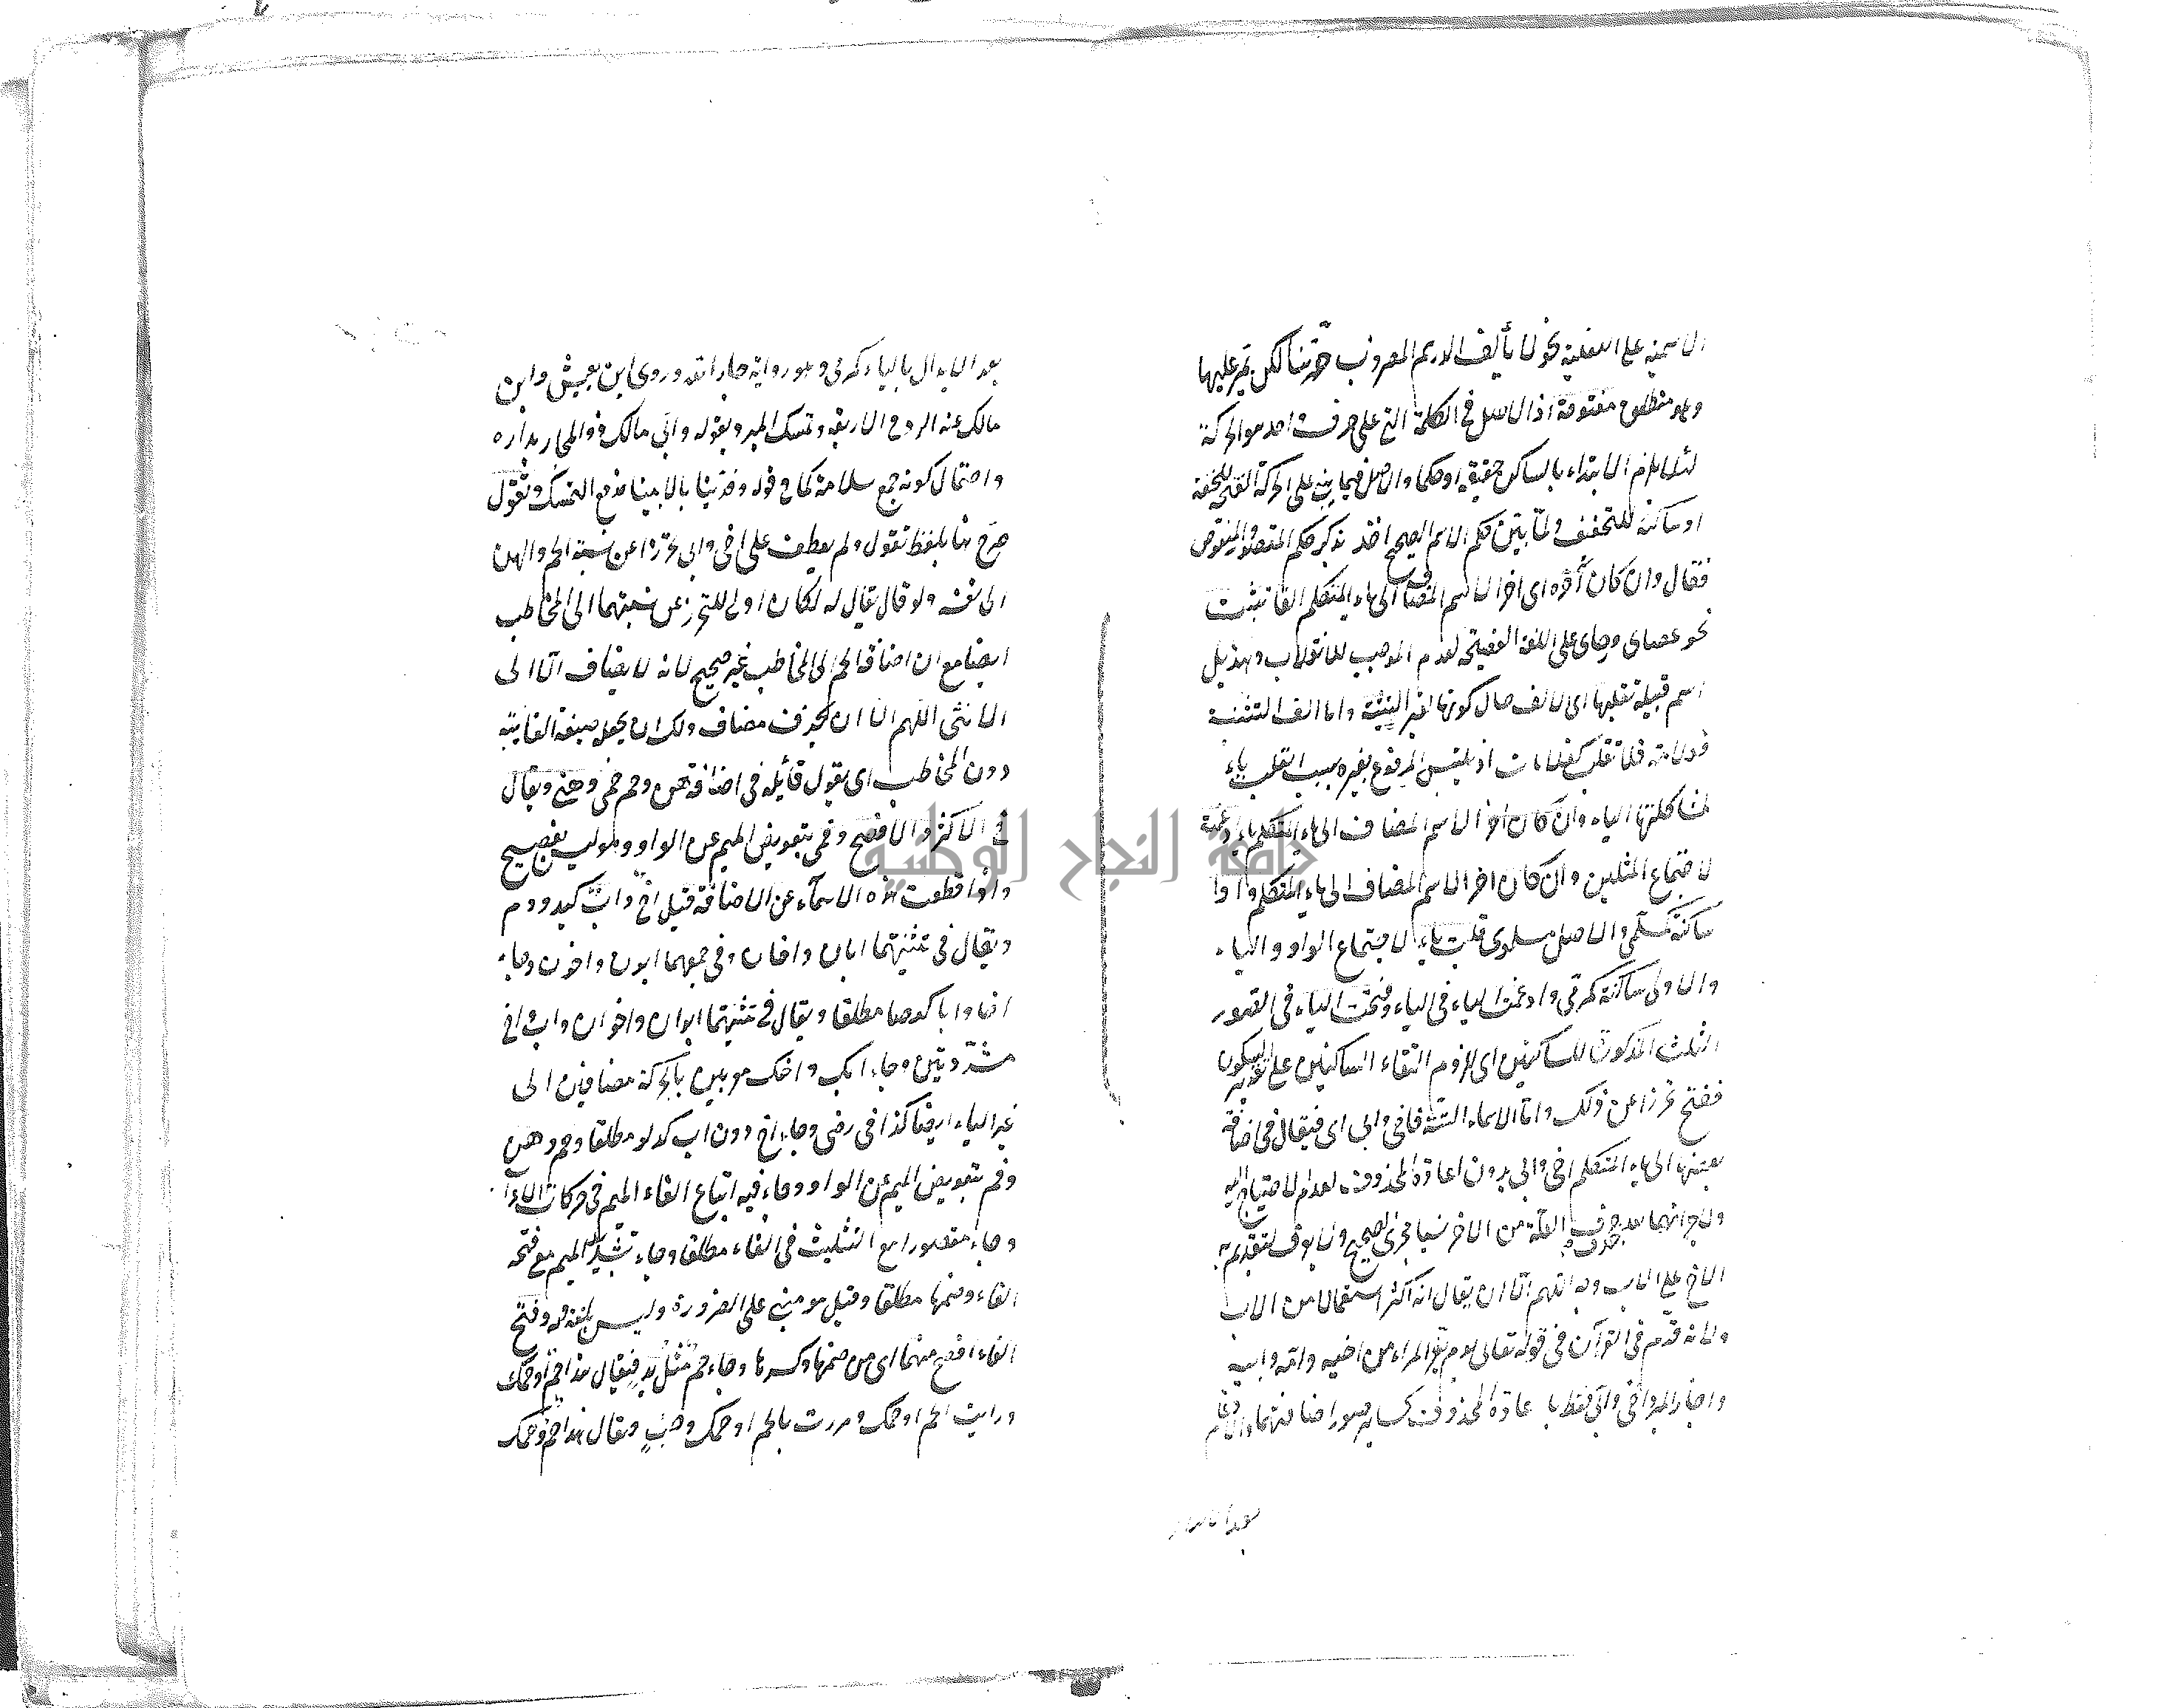 الاسمية على الفعلية نحو لنا تأليف الدرهم المضروب ضربنا لكن يمر عليها
وهو منطلق مفتوحة اذ الاصل في الكلمة التي على حرف واحد هو الحركة
لئلا يلزم الابتداء بالساكن حقيقة او حكما والاصل فيما بني على الحركة الفتح للخفة
او ساكنة للتخفيف ولما بين حكم الاسم الصحيح اخذ يذكر حكم المقصور والمنقوص
فقال وان كان آخره اي اخر الاسم المضاف الى ياء المتكلم الفا تثبت
نحو عصاي ورحاي على اللغة الفصيحة لعدم الموجب للانقلاب وهذيل
اسم قبيلة تقلبها اي الالف حال كونها لغير التثنية واما الف التثنية
فلا تقلب كغلاماي اذ يلتبس المرفوع بغيره بسبب القلب ياء
لمشاكلتها الياء وان كان اخر الاسم المضاف الى ياء المتكلم ياء ادغمت
لاجتماع المثلين وان كان اخر الاسم المضاف الى ياء المتكلم واوا
ساكنة كمسلمي والاصل مسلموي قلبت ياء لاجتماع الواو والياء
والاولى ساكنة كمرمي وادغمت الياء في الياء وفتحت الياء في الصور
الثلث المذكورة للساكنين اي للزوم التقاء الساكنين على تقدير السكون
ففتح تحرزا عن ذلك واما الاسماء الستة فاخي وابي اي فيقال في اضافة
بعضها الى ياء المتكلم اخي وابي بدون اعادة المحذوف لعدم الاحتياج اليه
ولاجرائهما بعد حذف حرف العلة من الاخر نسيا مجرى الصحيح ولا يعرف لتقديم
الاخ على الاب وجه اللهم الا ان يقال انه اكثر استعمالا من الاب
ولانه قدم في القرآن في قوله تعالى يوم يفر المرء من اخيه وامه وابيه
واجاز المبرد اخي وابي فقط باعادة المحذوف كساير صور اضافتهما والادغام
بعد الابدال
بعد الابدال بالياء كمرمي وهو رواية جار الله وروى ابن يعيش وابن
مالك عنه الردّ في الاربعة وتمسك المبرد بقوله وابي مالك ذو المجاز بدار
واحتمال كونه جمع سلامة كما في قوله وفديننا بالابينا يدفع التمسك وتقول
صرح هنا بلفظ تقول ولم يعطف على اخي وابي تحرزا عن نسبة الحم والهن
الى نفسه ولو قال يقال له لكان اولى للتحرز عن نسبتهما الى المخاطب
ايضا مع ان اضافة الحم الى المخاطب غير صحيح لانه لا يضاف الا الى
الانثى اللهم الا ان يحذف مضاف ولك ان يجعل صيغة الغائبة
دون المخاطب اي يقول قائلة في اضافة هن وحم حمي وهني ويقال
في الاكثر والافصح وفمي بتعويض الميم عن الواو وهو ليس بفصيح
واذا قطعت هذه الاسماء عن الاضافة قيل اخ واب كيد ودم
ويقال في تثنيتهما ابان واخان وفي جمعهما ابون واخون وجاء
اخا وابا كعصا مطلقا ويقال في تثنيتهما ابوان واخوان واب واخ
مشددتين وجاء ابك واخك معربين بالحركة مضافين الى
غير الياء ايضا كذا في رضي وجاء اخ دون اب كدلو مطلقا وحم وهن
وفم بتعويض الميم عن الواو وجاء فيه اتباع الفاء الميم في حركات الاعراب
وجاء مقصورا مع التثليث في الفاء مطلقا وجاء تشديد الميم مع فتحة
الفاء وضمها مطلقا وقيل هو مبني على الضرورة وليس بلغة وفتح
الفاء افصح منهما اي من ضمها وكسرها وجاء حم مثل يد فيقال هذا حم او حمك
ورايت الحم او حمك ومررت بالحم او حمك وخبء ويقال هذا حمؤ وحمؤك
جامعة النجاح الوطنية